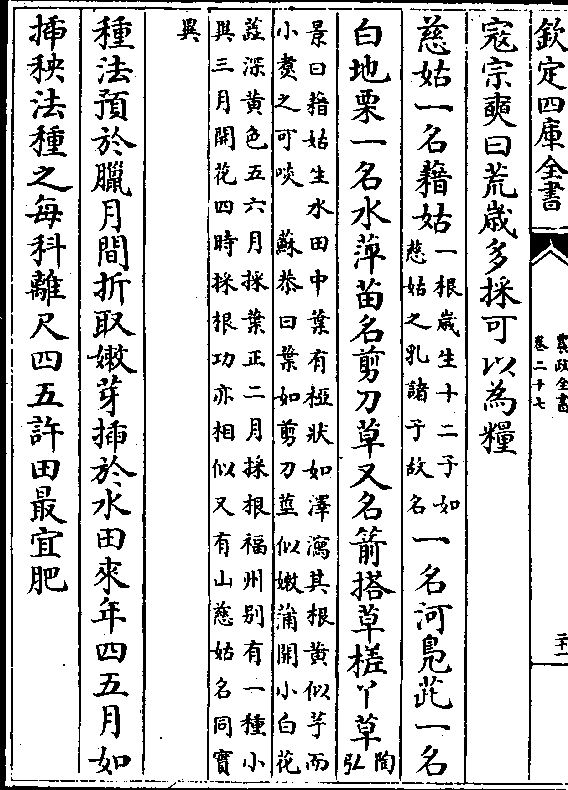 欽定四庫全書
農政全書
卷二十七
寇宗奭曰荒歲多採可以為糧
慈姑一名藉姑一根歲生十二子如
慈姑之乳諸子故名
一名河鳧茈一名
白地栗一名水萍苗名剪刀草又名箭搭草槎丫草陶
弘
景曰藉姑生水田中葉有椏狀如澤瀉其根黃似芋而
小煑之可啖 蘇恭曰葉如剪刀莖似嫩蒲開小白花
蘂深黃色五六月採葉正二月採根福州别有一種小
異三月開花四時採根功亦相似又有山慈姑名同實
異
種法預於臘月間折取嫩芽揷於水田來年四五月如
揷秧法種之每科離尺四五許田最宜肥